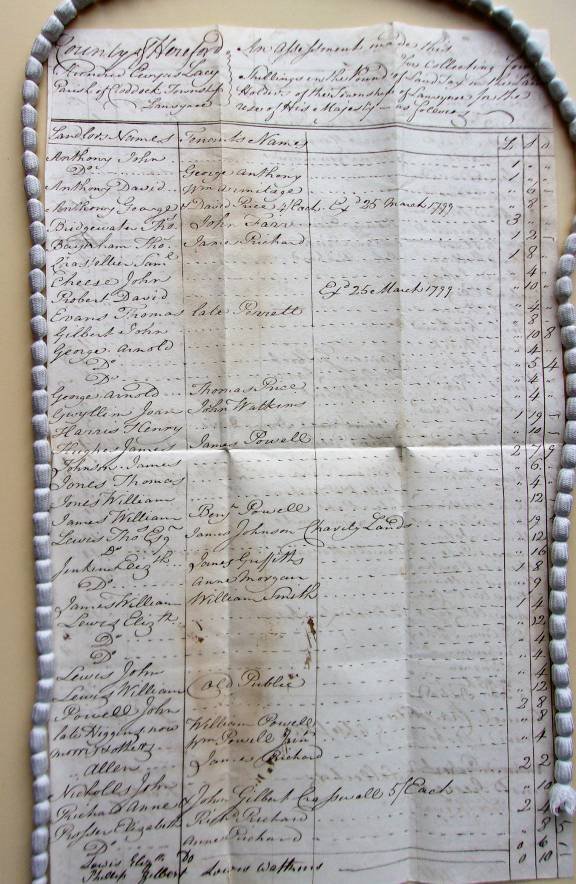 County of Hereford An Assessment made this
Hundred Ewyas Lacy for Collecting Four
Shillings in the Pound of Land Tax on the Land
Parish of Township Holders of the Township of for the
use of His Majesty as follows
Landlords Names Tenants Names L S D
Anthony John 1
Do George Anthony 1
Anthony David Wm Armitage 6
Anthony George David Price 4/ Each Exd 25 March 1799 8
Bridgewater Thos John Farr 3
Thos James Prichard 2
Saml 1 8
Cheese John 4
Robert David Exd 25 March 1799 10
Evans Thomas late Perrett 4
Gilbert John 8
George Arnold 10 8
Do 4
Do 5 4
George Arnold Thomas Price 4
Gwyllim Joan John Watkins 4
Harris Henry 1 19
Hughes James James Powell 10
Johnson James 2 7 9
Jones Thomas 6
Jones William 4
James William Benj Powell 12
Lewis Thos Esqr James Johnson Charity Lands 19
Do 12
Jenkins Elizth James Griffiths 16
Do Anne Morgan 1 8
James William William Smith 9
Lewis Elizth 4
Do 12
Do 4
Lewis John 4
Lewis William Old Public 4
Powell John 12
late Higgins now William Powell 3 8
Wm Powell Junr 8
Allen James Prichard 4
Nicholls John 2 2
Prichard Anne John Gilbert Powell 5/ Each 10
Prosser Elizabeth Richd Prichard 2 4
Do Anne Prichard 8 5
Lewis Elizth Do 0 6
Phillip Gilbert Lewis Watkins 0 10